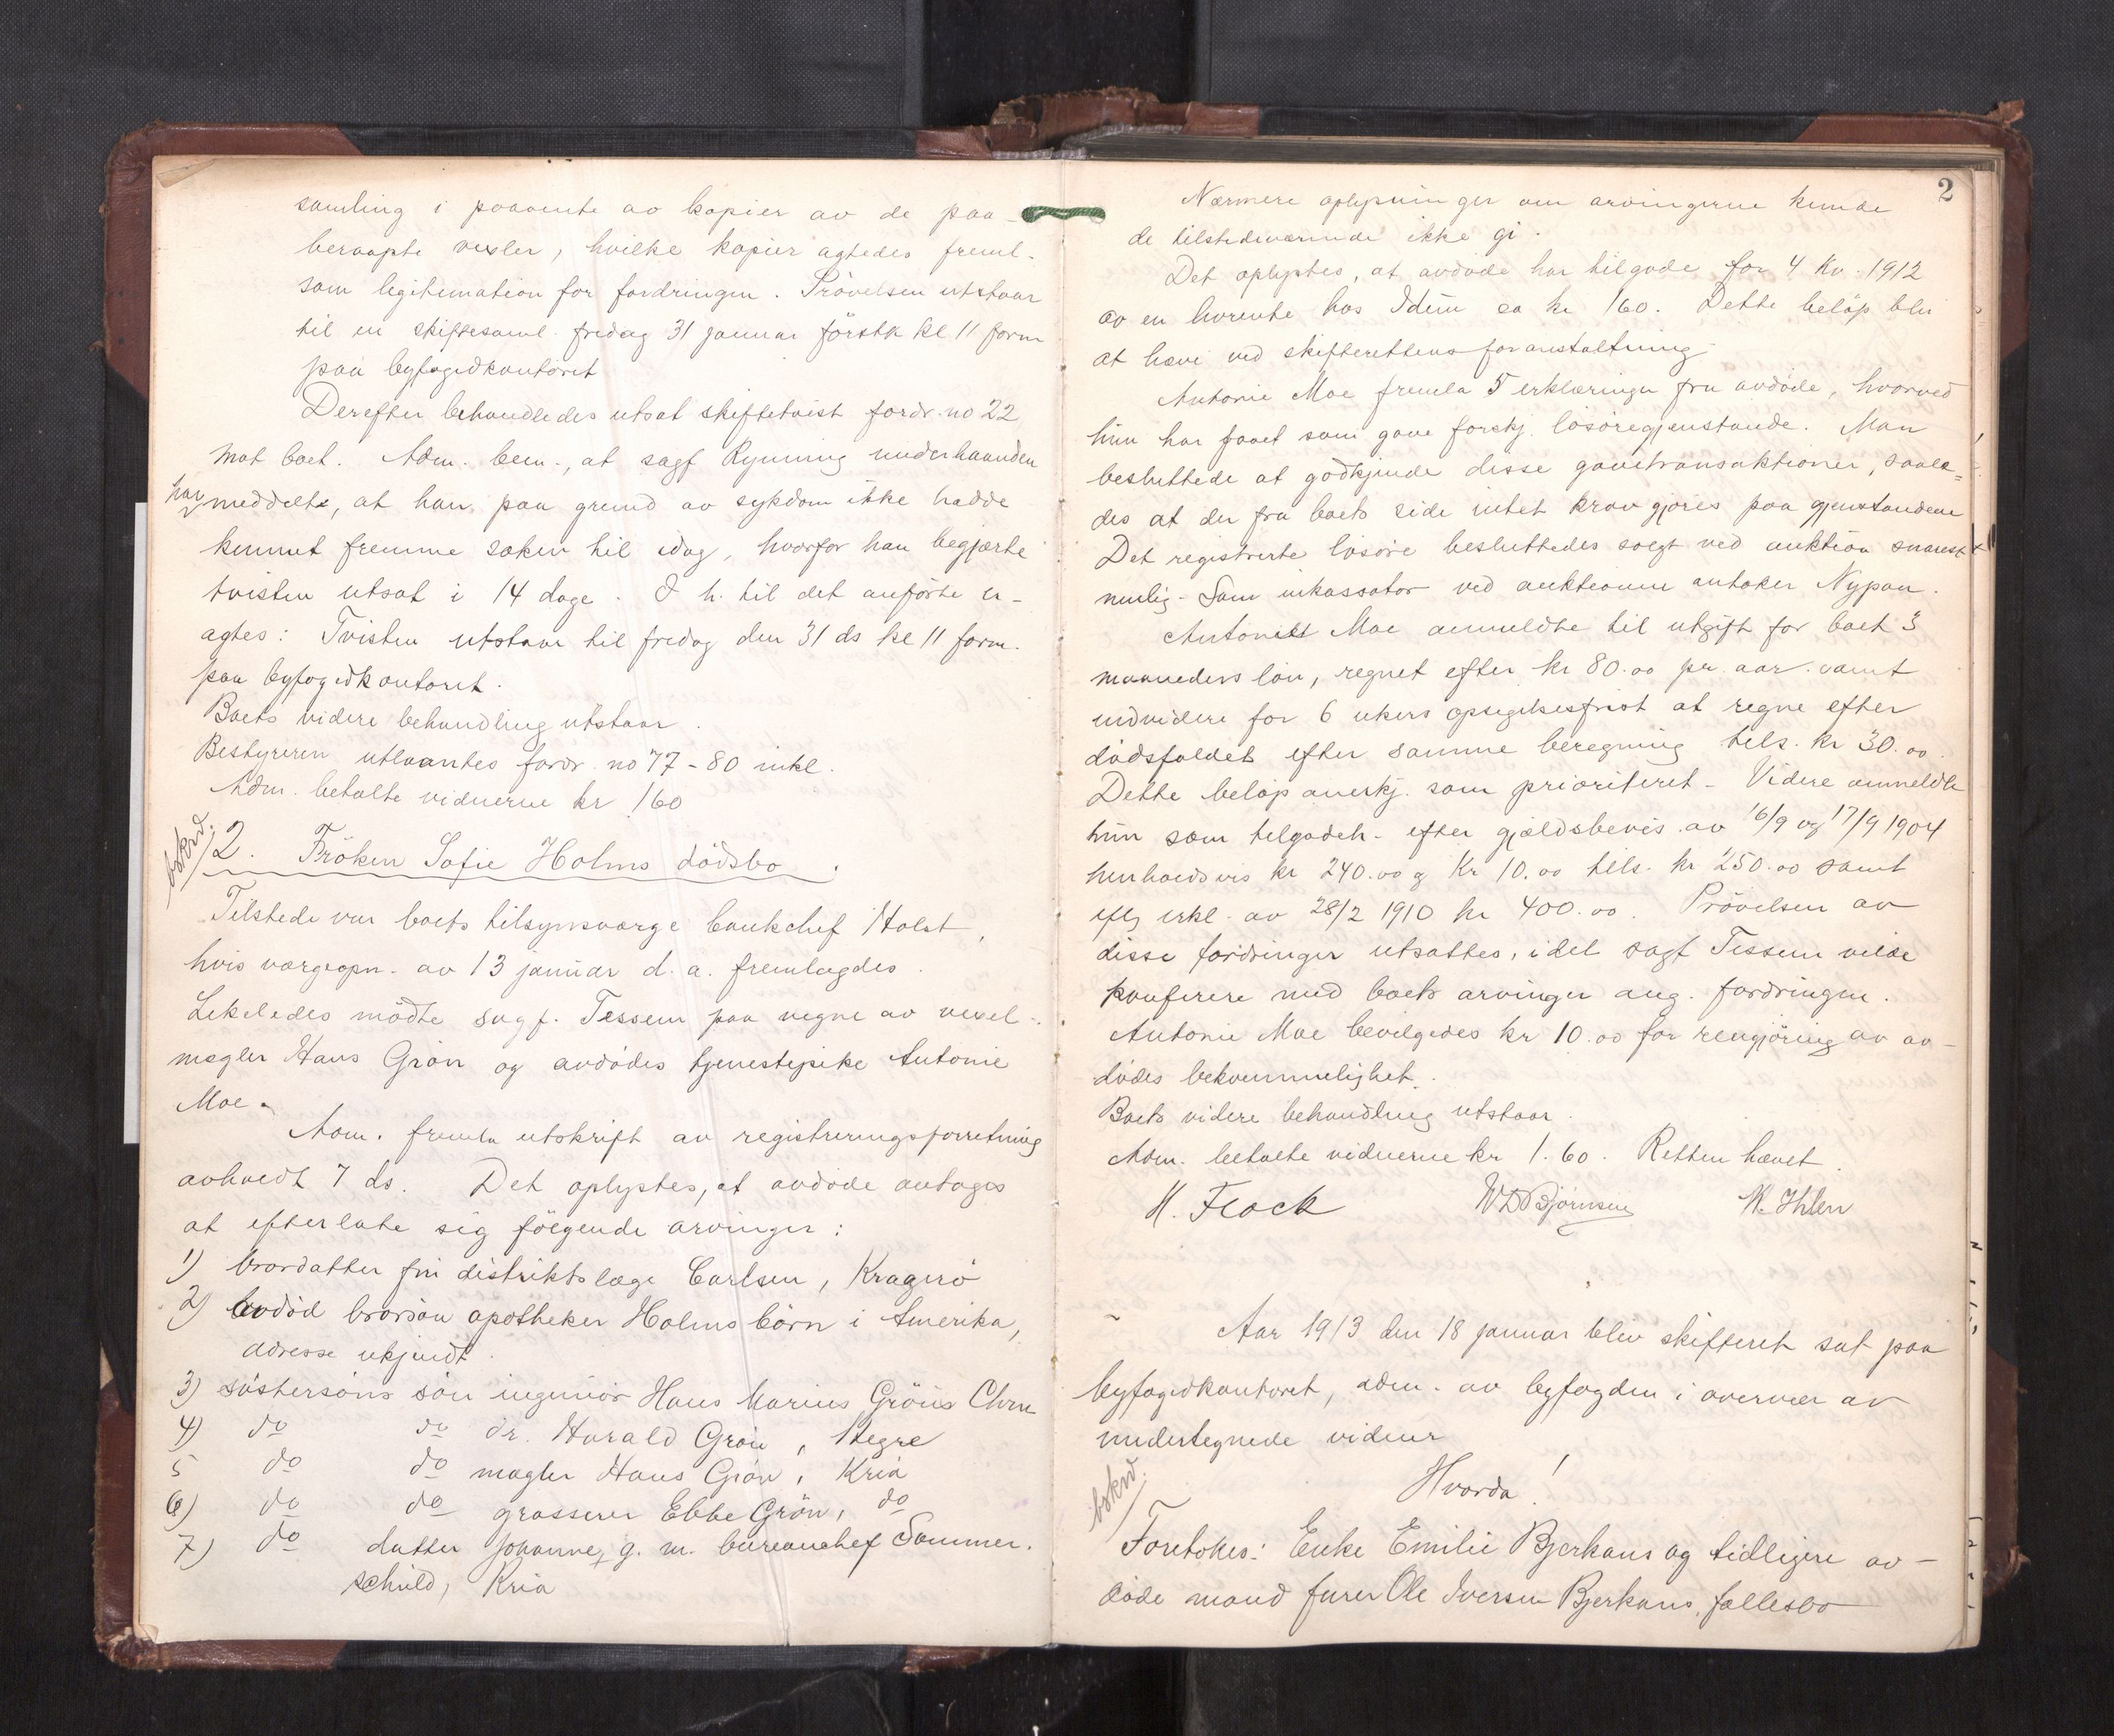 samling i paavente av kopier av de paa-
beraapte vexler, hvilke kopier agtedes freml.
som legitimation for fordringen. Prövelsen utstaar
til en skiftesaml. fredag 31 januar förstk kl 11 form
paa byfogedkontoret
Derefter behandledes utsat skiftetvist fordr. no 22
mot boet. Adm. bem., at sagf Rynning underhaanden
har meddelt, at han paa grund av sykdom ikke hadde
kunnet fremme saken til idag, hvorfor han begjærte
tvisten utsat i 14 dage. I h. til det anförte er-
agtes: Tvisten utstaar til fredag den 31 ds kl 11 form.
paa byfogedkontoret.
Boets videre behandling utstaar.
Bestyreren utlaantes fordr. no 77-80 inkl.
Adm. betalte vidnerne kr 160
bokd.
2. Fröken Sofie Holms dödsbo.
Tilstede var boets tilsynsværge bankchef Holst,
hvis værgeopn. av 13 januar d. a. fremlagdes.
Likeledes mödte sagf. Tessem paa vegne av vexel-
mægler Hans Grön og avdödes tjenestepike Antonie
Moe.
Adm. fremla utskrift av registreringsforretning
avholdt 7 ds. Det oplystes, at avdöde antages
at efterlate sig fölgende arvinger:
1) brordatter fru distriktslæge Carlsen, Kragerö
2) avdöd brorsön apotheker Holms börn i Amerika,
adresse ukjendt.
3) sösterssöns sön ingeniör Hans Marius Gröns Chra
4) do do dr. Harald Grön, Hegre
5 do do mægler Hans Grön, Kria
6) do do grosserer Ebbe Grön, do
7) do datter Johanne, g. m. bureauchef Sommer-
schild, Kria
2
Nærmere oplysninger om arvingerne kunde
de tilstedeværende ikke gi.
Det oplystes, at avdöde har tilgode for 4 Kv. 1912
av en livrente hos Idun ca kr 160. Dette belöp blir
at hæve ved skifterettens foranstaltning
Antonie Moe fremla 5 erklæringer fra avdöde, hvorved
hun har faaet som gave forskj. lösöregjenstande. Man
besluttede at godkjende disse gavetransaktioner, saale=
des at der fra boets side intet krav gjöres paa gjenstandene
Det registrerte lösöre besluttedes solgt ved auktion snarest
mulig. Som inkassator ved auktionen antokes Nypan.
Antonie Moe anmeldte til utgift for boet 3
maaneders lön, regnet efter kr 80.00 pr. aar samt
endvidere for 6 ukers opsigelsesfrist at regne efter
dödsfaldet efter samme beregning tils. kr 30.00.
Dette belöp anerkj. som prioriteret. Videre anmeldte
hun som tilgodeh. efter gjældsbevis av 16/9 og 17/9 1904
henholdsvis kr 240.00 og Kr 10.00 tils. kr 250.00 samt
iflg erkl. av 28/2 1910 kr 400.00. Prövelsen av
disse fordringer utsattes, idet sagf Tessem vilde
konferere med boets arvinger ang. fordringen.
Antonie Moe bevilgedes kr 10.00 for rengjöring av av-
dödes bekvemmelighet.
Boets videre behandling utstaar.
Adm. betalte vidnerne kr 1.60. Retten hævet.
H. Flock W D Bjørnsen M. Ihlen
Aar 1913 den 18 januar blev skifteret sat paa
byfogedkontoret, adm. av byfogden i overvær av
undertegnede vidner
Hvorda!
bokd.
Foretokes: Enke Emilie Bjerkans og tidligere av-
döde mand furer Ole Iversen Bjerkans fællesbo